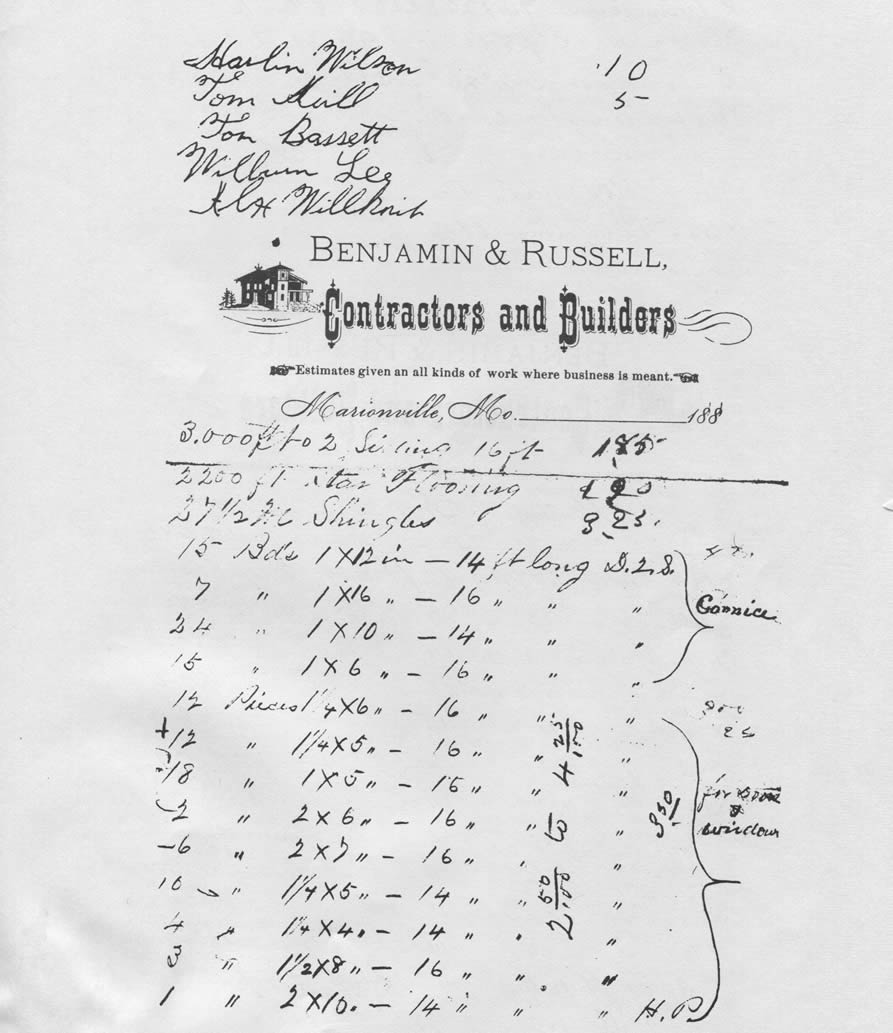 Harlin Wilson 10
Tom 5
Tom Bassett
Wilburn Lee
Willhoit
BENJAMIN & RUSSELL,
Contractors and Builders
Estimates given an all kinds of work where business is meant.
Marionville, Mo. 188
3.000 ft to 2 Siding 16 ft
2200 ft Star Flooring
27 1/2 M Shingles 3.25.
15 Bds 1 X 12 in — 14 ft long D.2.S.
7 " 1 X 16 " — 16 " " " Cornice
24 " 1 X 10 " — 14 " " "
15 " 1 X 6 " — 16 " " "
12 Pieces 1 1/4 X 6 " — 16 " " "
12 " 1 1/4 X 5 " — 16 " "
18 " 1 X 5 " — 16 " " " for door
2 " 2 X 6 " — 16 " " " & window
6 " 2 X 7 " — 16 " " "
10 " 1 1/4 X 5 " — 14 " " "
4 " 1 1/4 X 4 " — 14 " " "
3 " 1 1/2 X 8 " — 16 " " "
1 " 2 X 10 " — 14 " " " H.P.
4 25/100
2 50/100